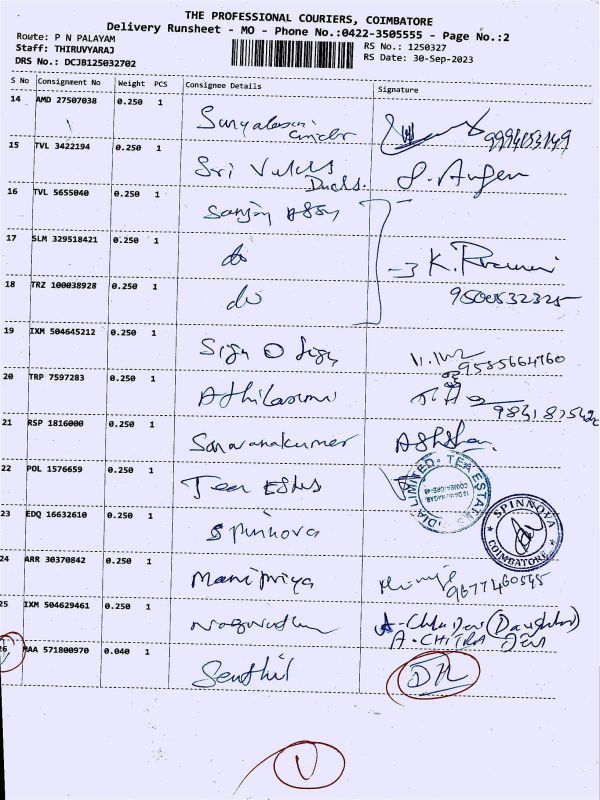 THE PROFESSIONAL COURIERS, COIMBATORE
Delivery Runsheet - MO - Phone No.:0422-3505555 - Page No.:2
Route: P N PALAYAM
Staff: THIRUVYARAJ
DRS No.: DCJB125032702
RS No.: 1250327
RS Date: 30-Sep-2023
S No Consignment No Weight PCS Consignee Details Signature
14 AMD 27507038 0.250 1
15 TVL 3422194 0.250 1 Sri
16 TVL 5655040 0.250 1 Sanjay
17 SLM 329518421 0.250 1 do K.
18 TRZ 100038928 0.250 1 do 9500532325
19 IXM 504645212 0.250 1 Sign O Sign 9585664760
20 TRP 7597283 0.250 1 Athilaxmi
21 RSP 1816000 0.250 1 Saravanakumar
22 POL 1576659 0.250 1 Tea
23 EDQ 16632610 0.250 1 Spinnova SPINNOVA COIMBATORE
24 ARR 30370842 0.250 1 Manipriya 9677460545
25 IXM 504629461 0.250 1 (Daughter)
A-CHITRA Devi
26 MAA 571800970 0.040 1 Senthil